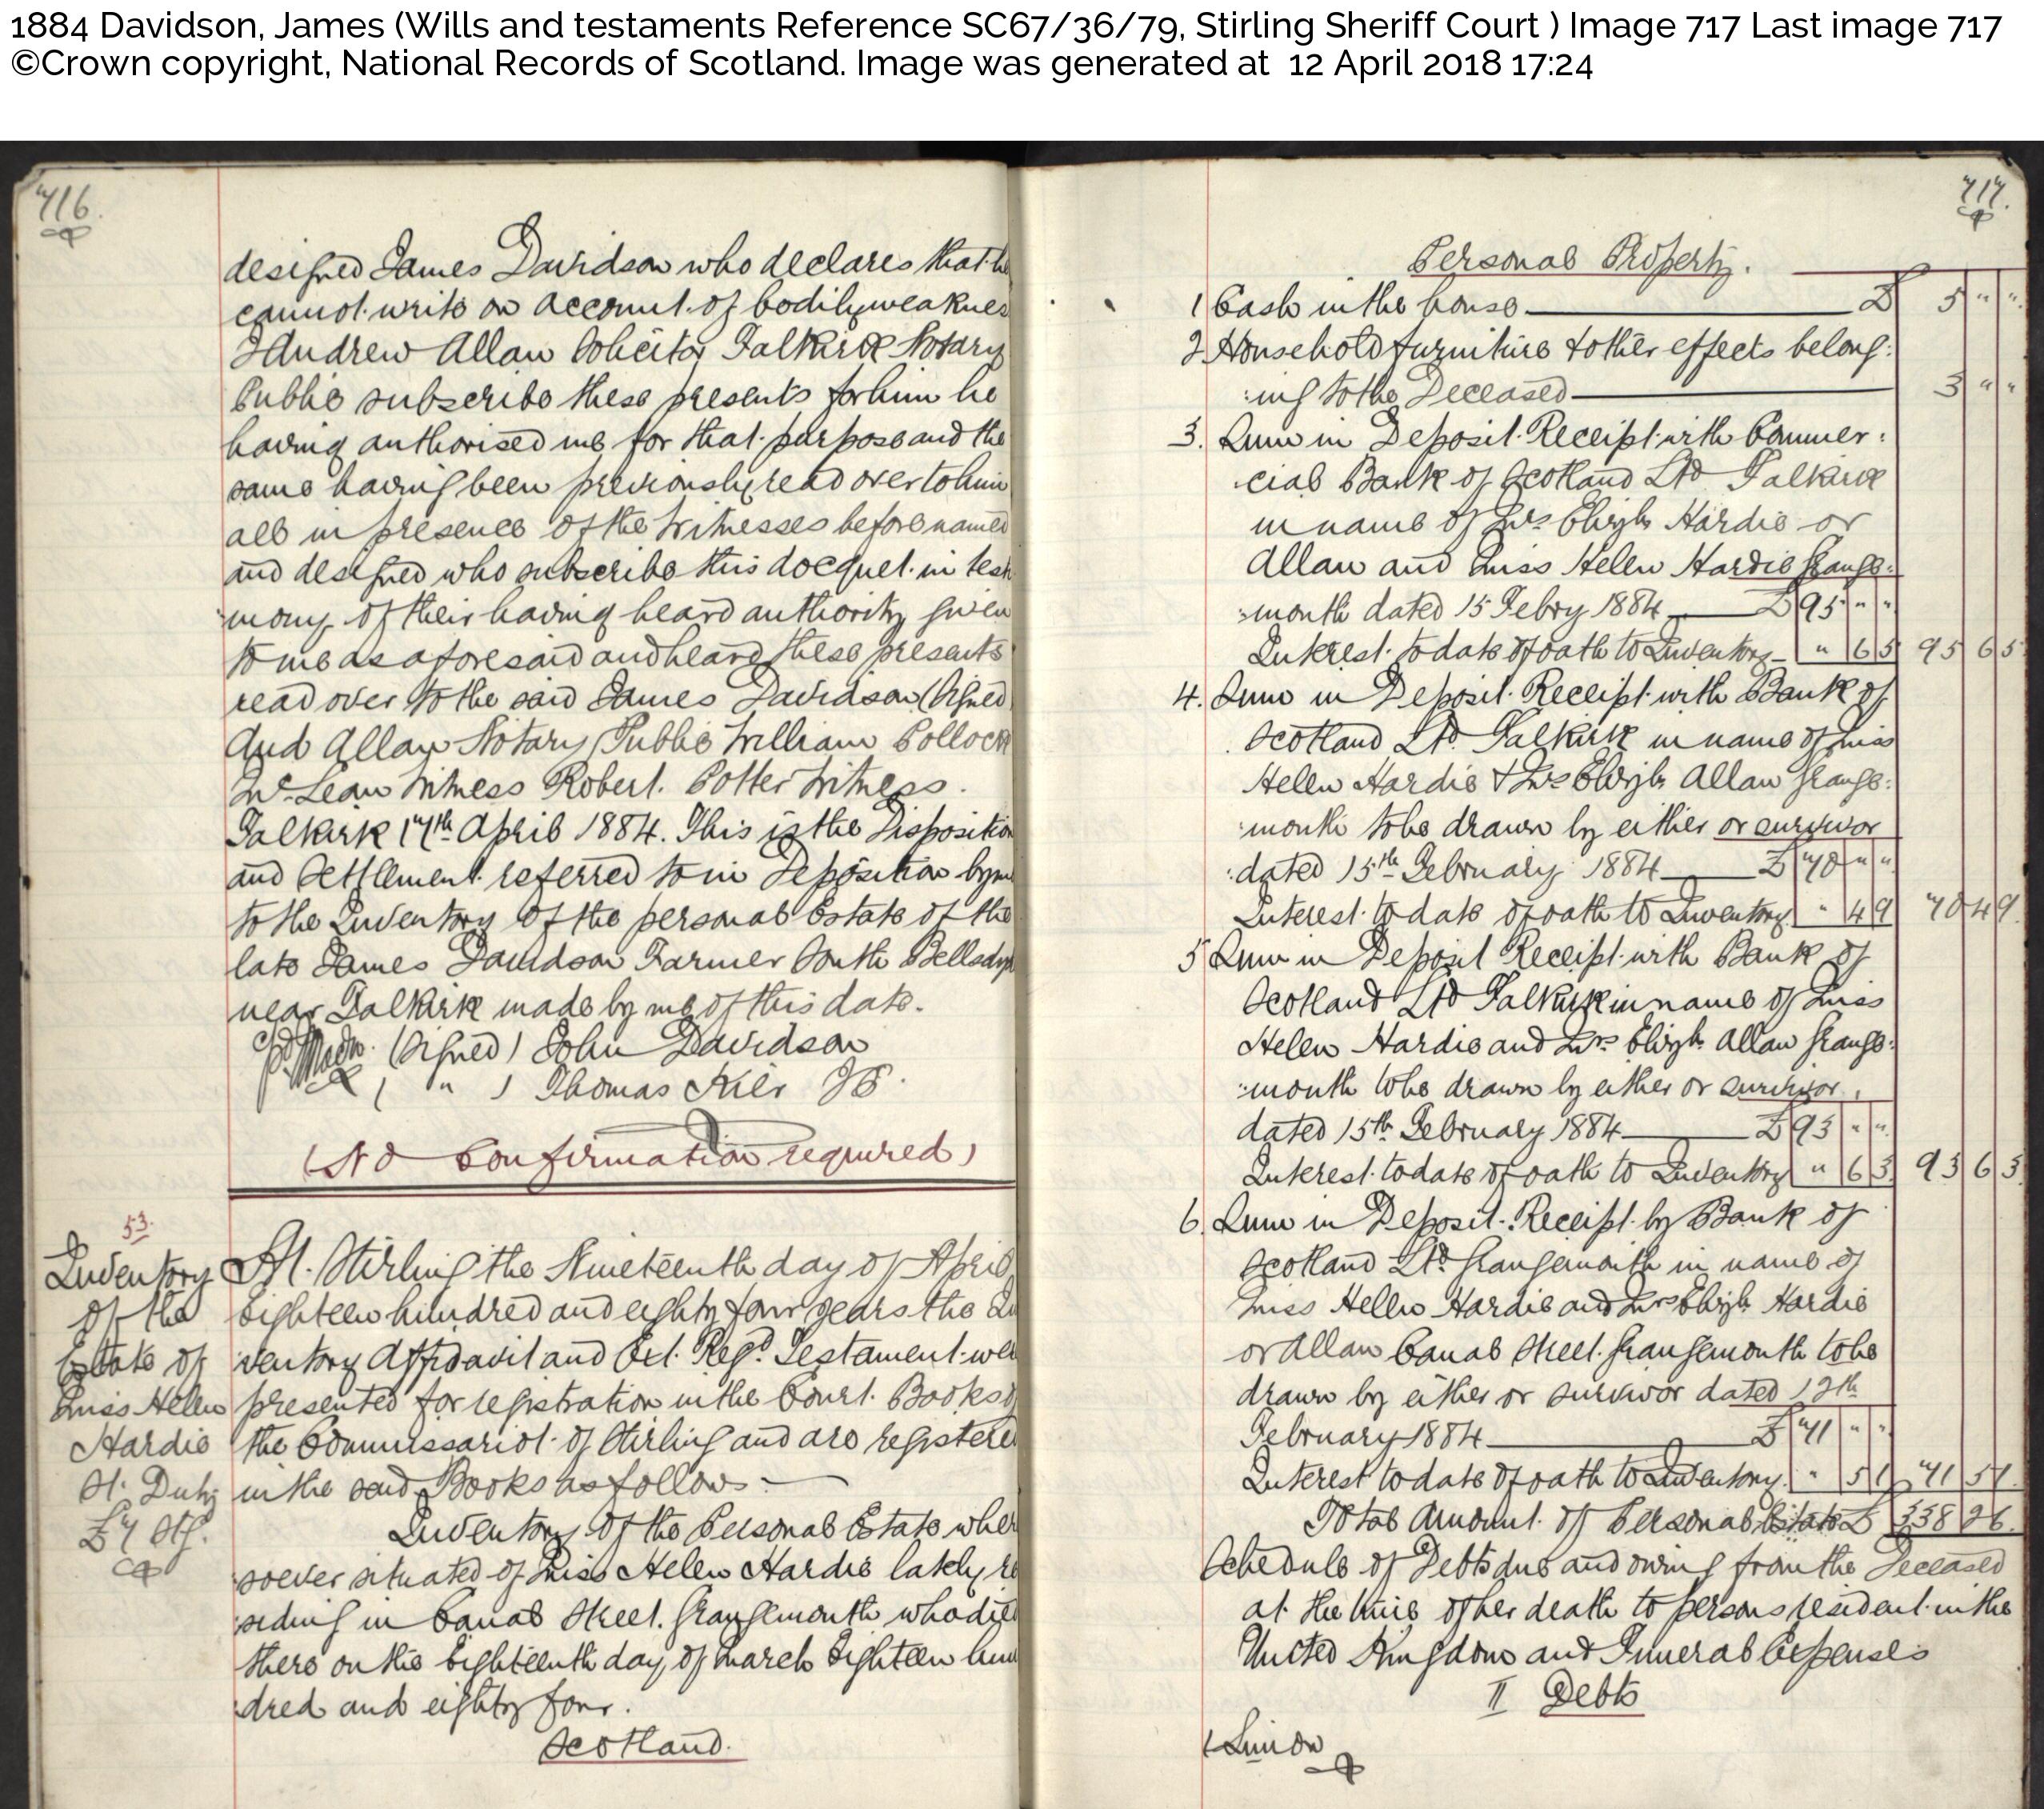 1884 Davidson, James (Wills and testaments Reference SC67/36/79, Stirling Sheriff Court ) Image 717 Last image 717
©Crown copyright, National Records of Scotland. Image was generated at 12 April 2018 17:24
716.
designed James Davidson who declares that he
cannot write on account of bodily weaknes
I Andrew Allan Solicitor Falkirk Notary
Public subscribe these presents for him he
having authorised me for that purpose and the
same having been previously read over to him
all in presence of the Witnesses before named
and designed who subscribe this docquet in testi
:mony of their having heard authority given
to me as aforesaid and heard these presents
read over to the said James Davidson (Signed
And Allan Notary Public William Pollock
McLean Witness Robert Potter Witness.
Falkirk 17th April 1884. This is the Disposition
and Settlement referred to in Deposition by me
to the Inventory of the personal Estate of the
late James Davidson Farmer South Bellsdyke
near Falkirk made by me of this date.
(Signed) John Davidson
( " ) Thomas Kier JP.
(No Confirmation required)
53.
Inventory
of the
Estate of
Miss Helen
Hardie
St. Duty
£7 Stg.
At Stirling the Nineteenth day of April
Eighteen hundred and eighty four years the In
ventory Affidavit and Ext. Regd. Testament were
presented for registration in the Court Books of
the Commissariot of Stirling and are registered
in the said Books as follows :—
Inventory of the Personal Estate where
soever situated of Miss Helen Hardie lately re
siding in Canal Street Grangemouth who died
there on the Eighteenth day of March Eighteen hun
dred and eighty four.
Scotland.
717.
Personal Property.
1 Cash in the house £ 5 " "
2 Household furniture & other effects belong:
:ing to the Deceased 3 " "
3. Sum in Deposit Receipt with Commer:
cial Bank of Scotland Ltd Falkirk
in name of Mrs Elizth Hardie or
Allan and Miss Helen Hardie Grange:
:month dated 15 Febry 1884 £ 95 " "
Interest to date of oath to Inventory " 6 5 95 6 5
4. Sum in Deposit Receipt with Bank of
Scotland Ltd. Falkirk in name of Miss
Helen Hardie & Mrs Elizth Allan Grange:
:mouth to be drawn by either or survivor
dated 15th February 1884 £ 70 " "
Interest to date of oath to Inventory " 4 9 70 4 9
5 Sum in Deposit Receipt with Bank of
Scotland Ltd Falkirk in name of Miss
Helen Hardie and Mrs Elizth Allan Grange:
:mouth to be drawn by either or survivor
dated 15th February 1884 £ 93 " "
Interest to date of oath to Inventory " 6 3 93 6 3
6. Sum in Deposit Receipt by Bank of
Scotland Ltd. Grangemouth in name of
Miss Hellen Hardie and Mrs Elizth Hardie
or Allan Canal Street Grangemouth to be
drawn by either or survivor dated 12th
February 1884 £ 71 " "
Interest to date of oath to Inventory " 5 1 71 5 1
Total Amount of Personal Estate £ 338 2 6
Schedule of Debts due and owing from the Deceased
at the time of her death to persons resident in the
United Kingdom and Funeral Expenses
II Debts